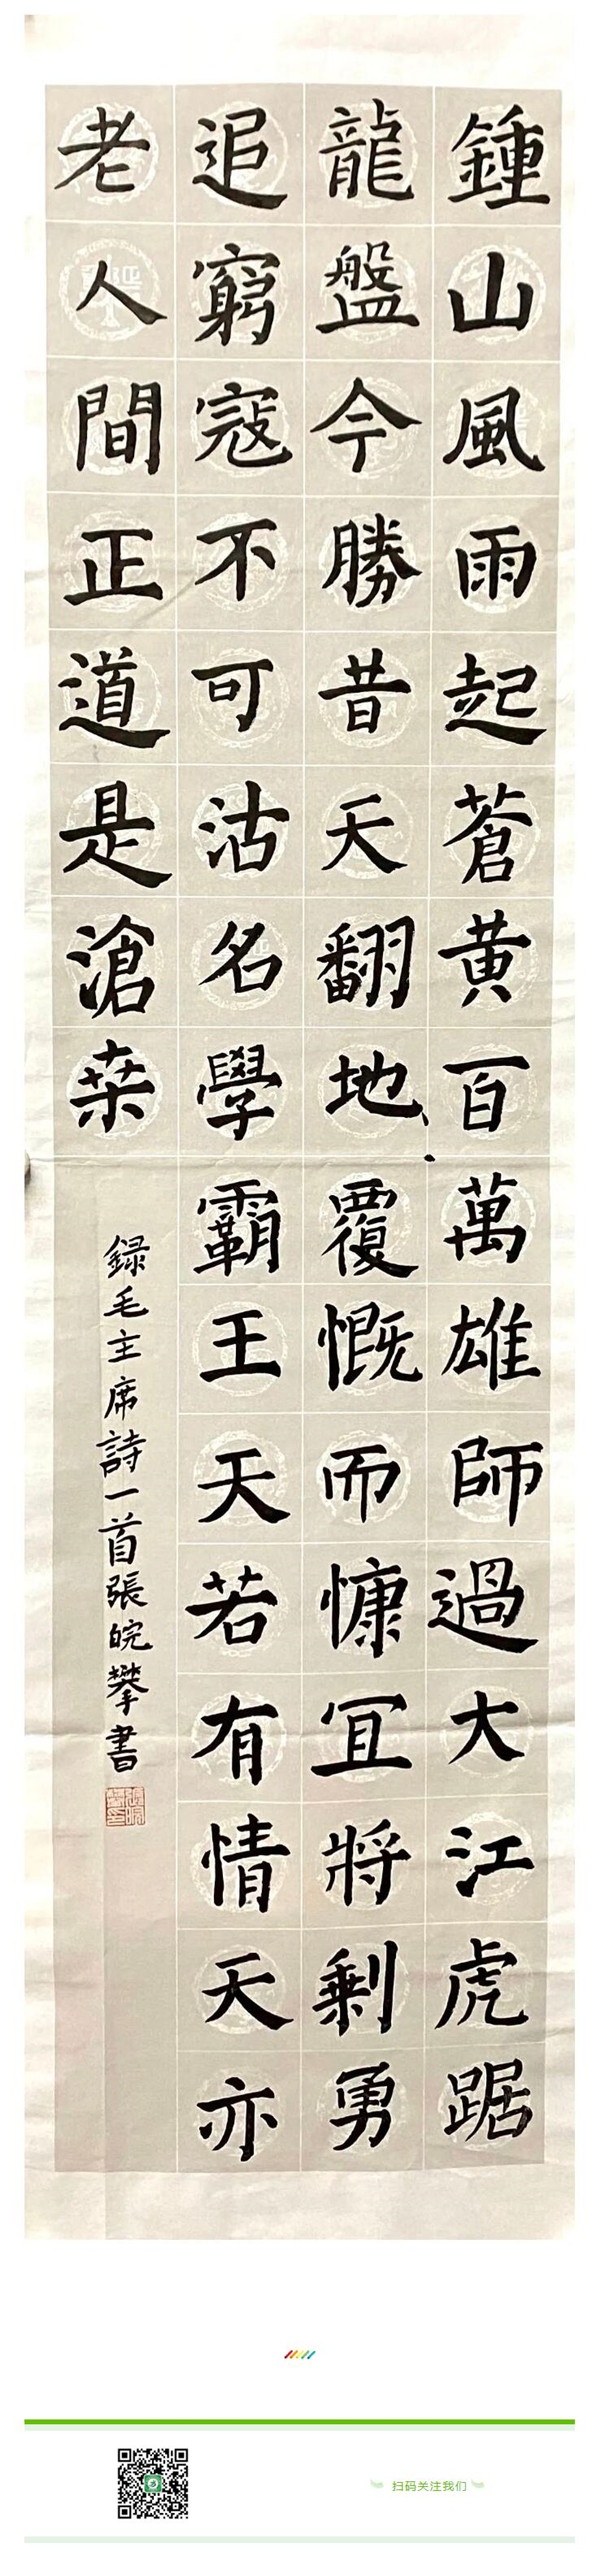 鍾山風雨起蒼黄百萬雄師過大江虎踞
龍盤今勝昔天翻地覆慨而慷宜將剩勇
追窮寇不可沽名學霸王天若有情天亦
老人間正道是滄桒
録毛主席詩一首張皖攀書
扫码关注我们